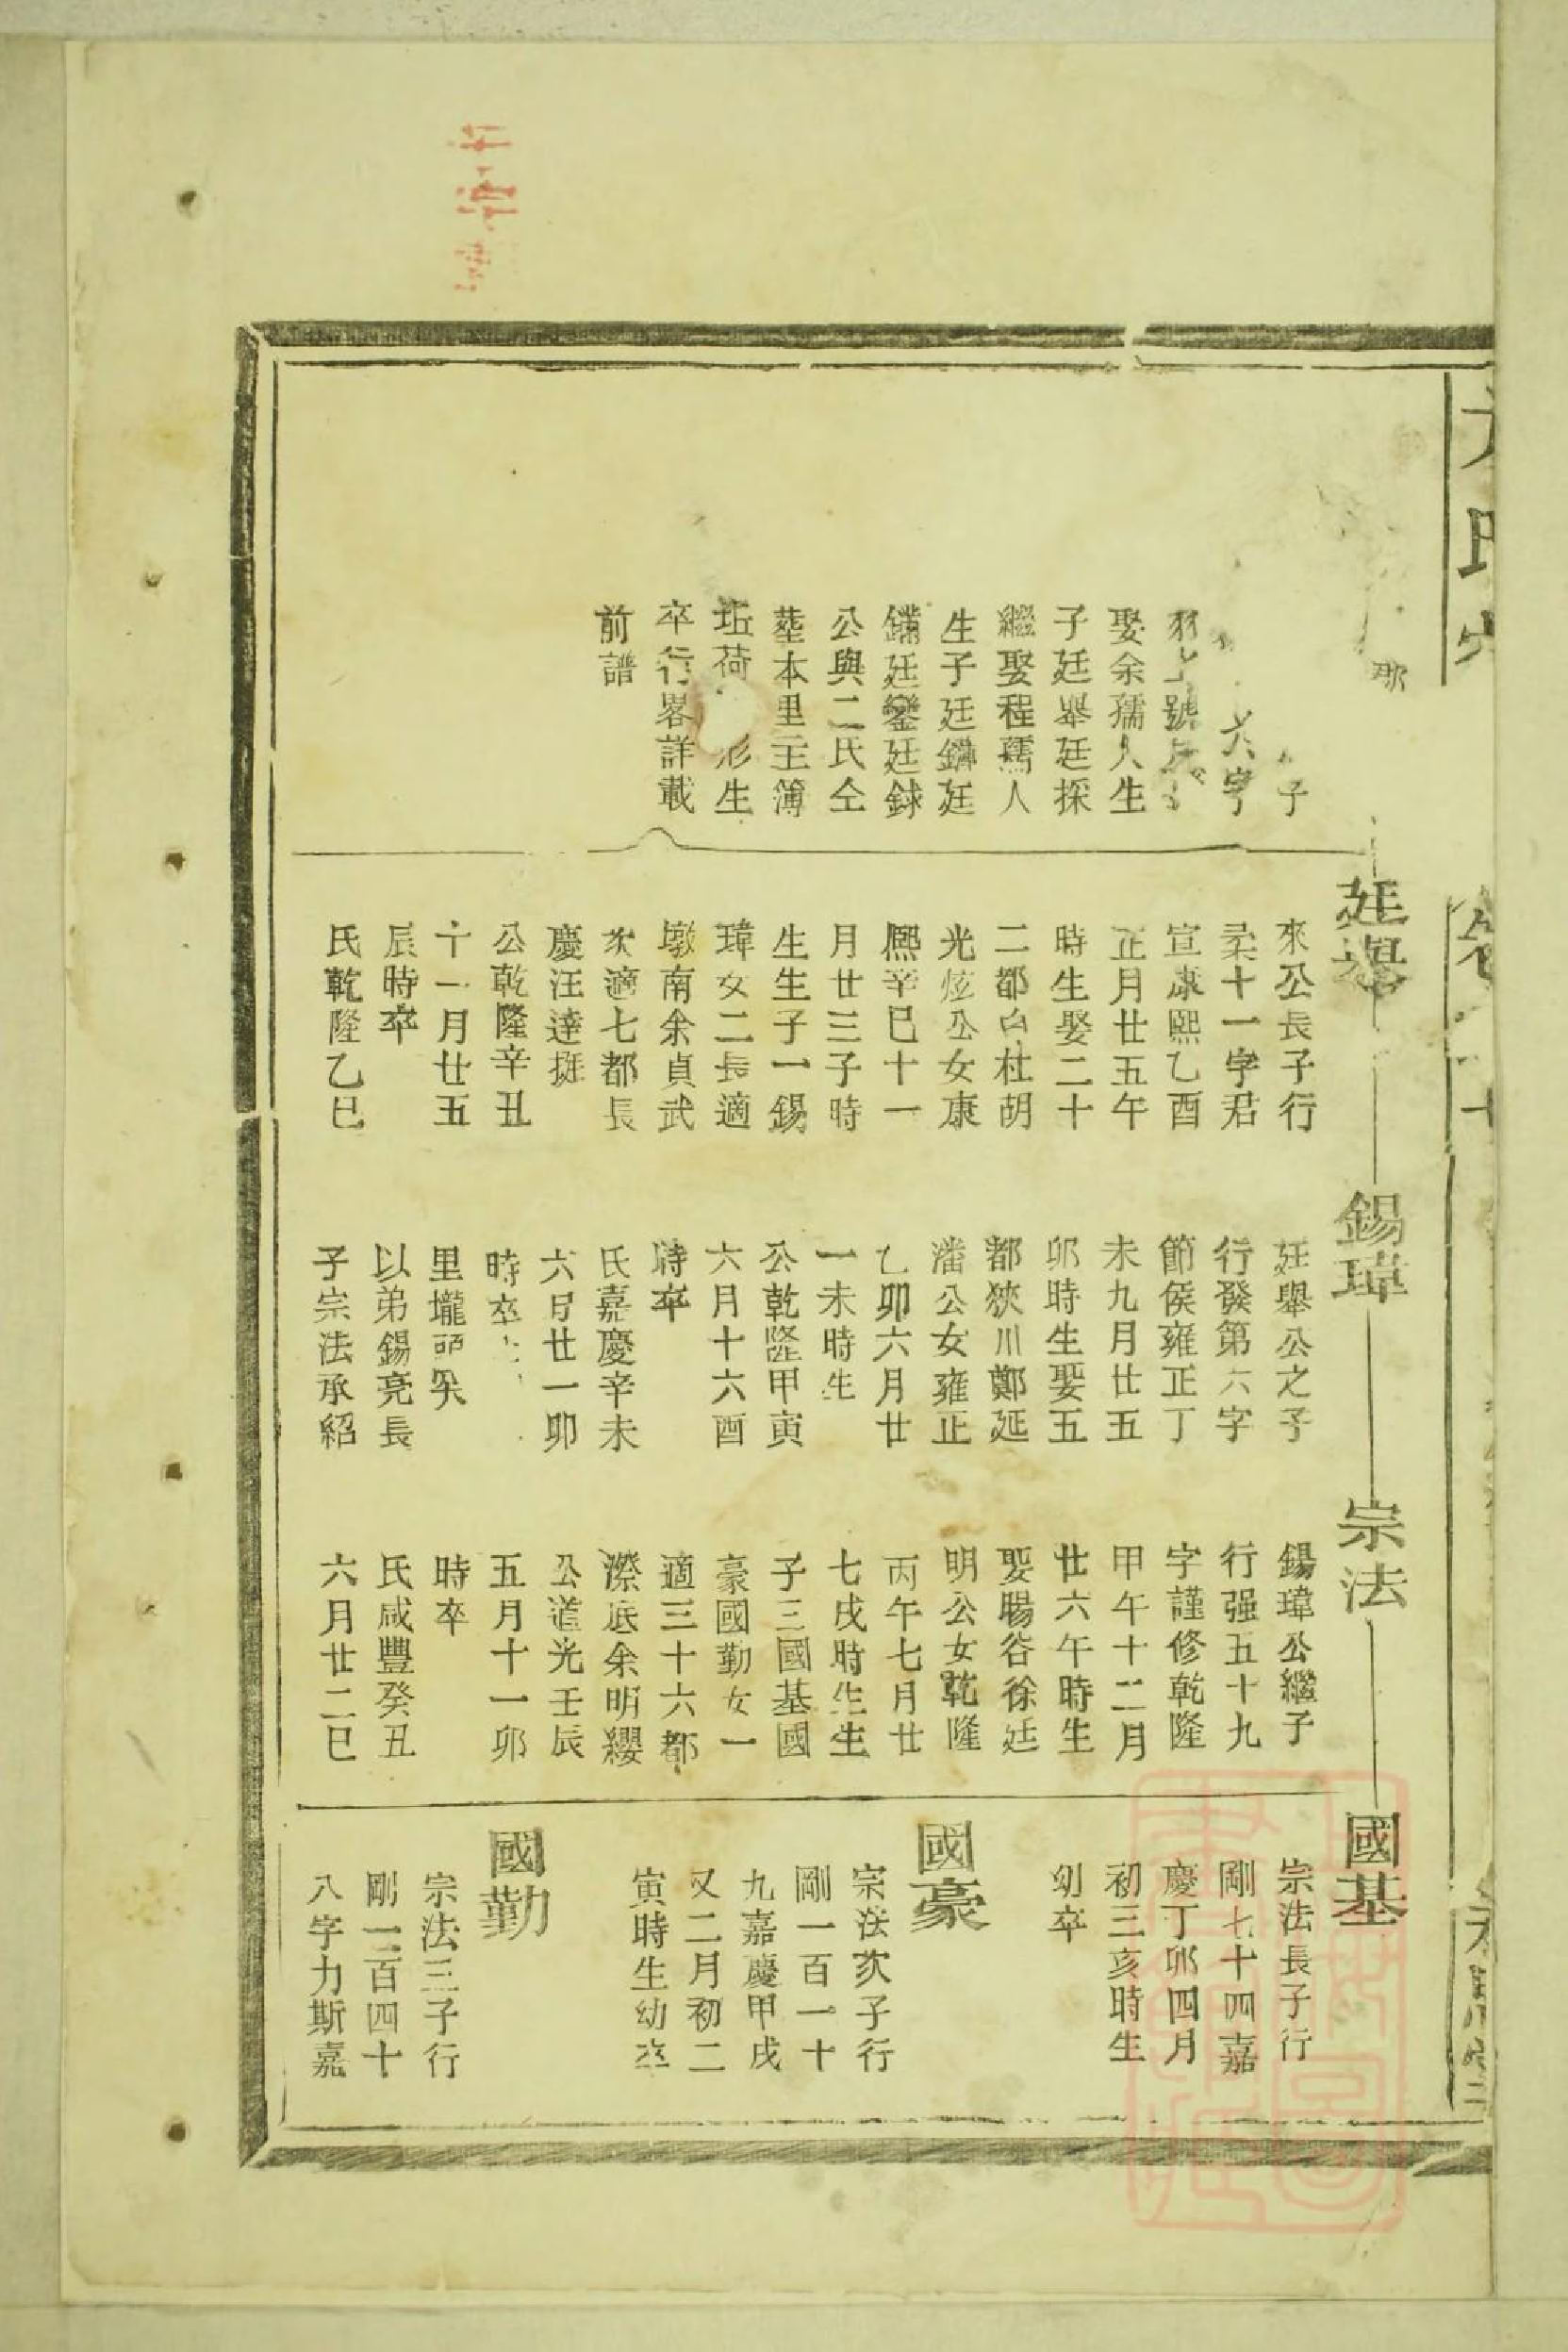 娶余孺人生
子廷舉廷採
繼娶程孺人
生子廷鏞廷
鏞廷鑾廷錸
公與二氏仝
塟本里主簿
坵荷 形生
卒行畧詳載
前譜
廷舉
來公長子行
柔十一字君
宣康熙乙酉
正月廿五午
時生娶二十
二都白杜胡
光炫公女康
熙辛巳十一
月廿三子時
生生子一錫
瑋女二長適
墩南余貞武
次適七都長
慶汪達挺
公乾隆辛丑
十一月廿五
辰時卒
氏乾隆乙巳
錫瑋
廷舉公之子
行發第六字
節侯雍正丁
未九月廿五
卯時生娶五
都狹川鄭延
潘公女雍正
乙卯六月廿
一未時生
公乾隆甲寅
六月十六酉
時卒
氏嘉慶辛未
六月廿一卯
時卒
里壠
以弟錫亮長
子宗法承紹
宗法
錫瑋公繼子
行强五十九
字謹修乾隆
甲午十二月
廿六午時生
娶暘谷徐廷
明公女乾隆
丙午七月廿
七戌時生生
子三國基國
豪國勤女一
適三十六都
漈底余明纓
公道光壬辰
五月十一卯
時卒
氏咸豐癸丑
六月廿二巳
國基
宗法長子行
剛七十四嘉
慶丁卯四月
初三亥時生
幼卒
國豪
宗法次子行
剛一百一十
九嘉慶甲戌
又二月初二
寅時生幼卒
國勤
宗法三子行
剛一百四十
八字力斯嘉